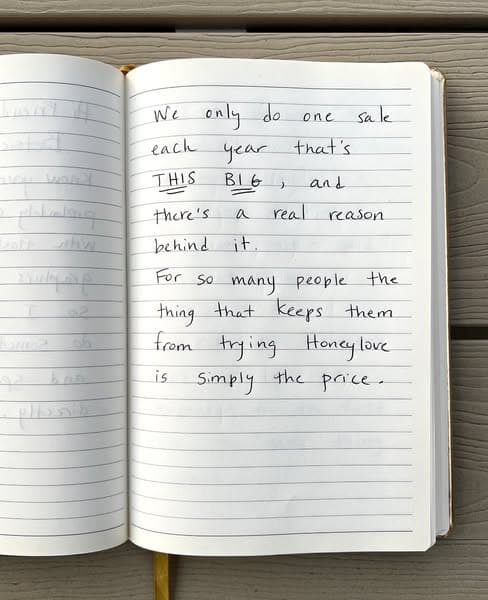 We only do one sale
each year that's
THIS BIG, and
there's a real reason
behind it.
For so many people the
thing that keeps them
from trying Honeylove
is simply the price.